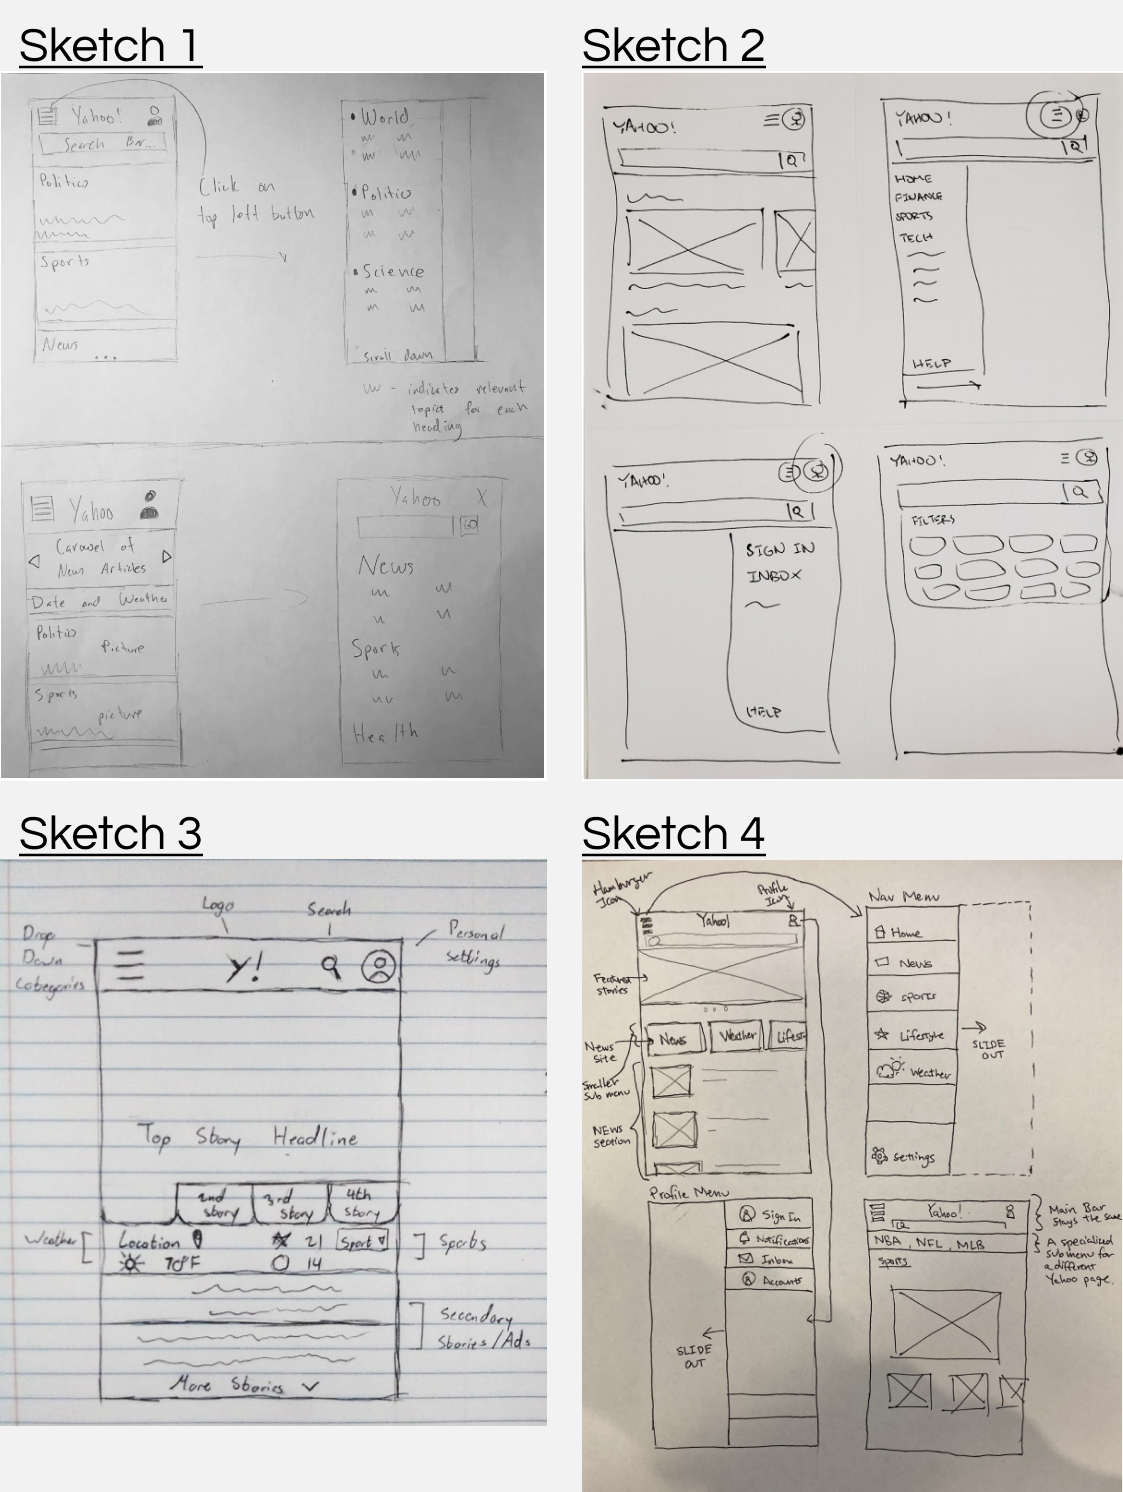 Sketch 1
Yahoo!
Search Bar...
Politics
Sports
News
...
Click on
top left button
World
Politics
Science
scroll down
- indicates relevant
topics for each
heading
Yahoo
Carousel of
News Articles
Date and Weather
Politics
Picture
Sports
picture
Yahoo X
GO
News
Sports
Health
Sketch 2
YAHOO!
YAHOO!
HOME
FINANCE
SPORTS
TECH
HELP
YAHOO!
SIGN IN
INBOX
HELP
YAHOO!
FILTERS
Sketch 3
Logo
Search
Drop
Down
Categories
Personal
settings
Y!
Top Story Headline
2nd
story
3rd
story
4th
story
Weather
Location
70°F
21
14
Sport
Sports
Secondary
Stories/Ads
More Stories
Sketch 4
Hamburger
Icon
Profile
Icon
Yahoo!
Featured
stories
News
Weather
Lifest
News
site
Smaller
Sub menu
NEWS
section
Nav Menu
Home
News
Sports
Lifestyle
Weather
Settings
SLIDE
OUT
Profile Menu
Sign In
Notifications
Inbox
Accounts
SLIDE
OUT
Yahoo!
NBA, NFL, MLB
Sports
Main Bar
stays the same
A specialized
submenu for
a different
Yahoo page.